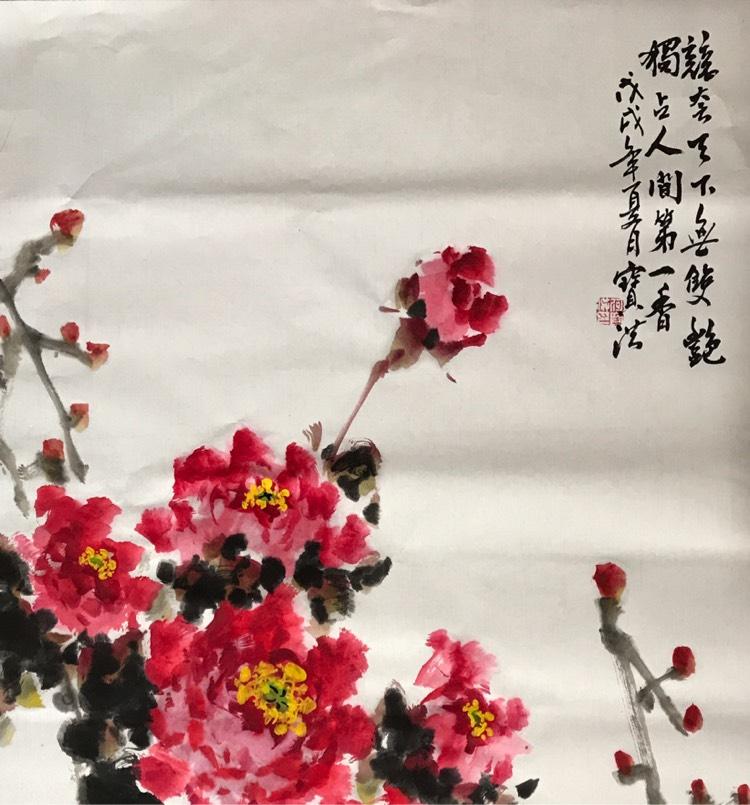 競夸天下無雙艷
獨占人間第一香
戊戌年夏月寶